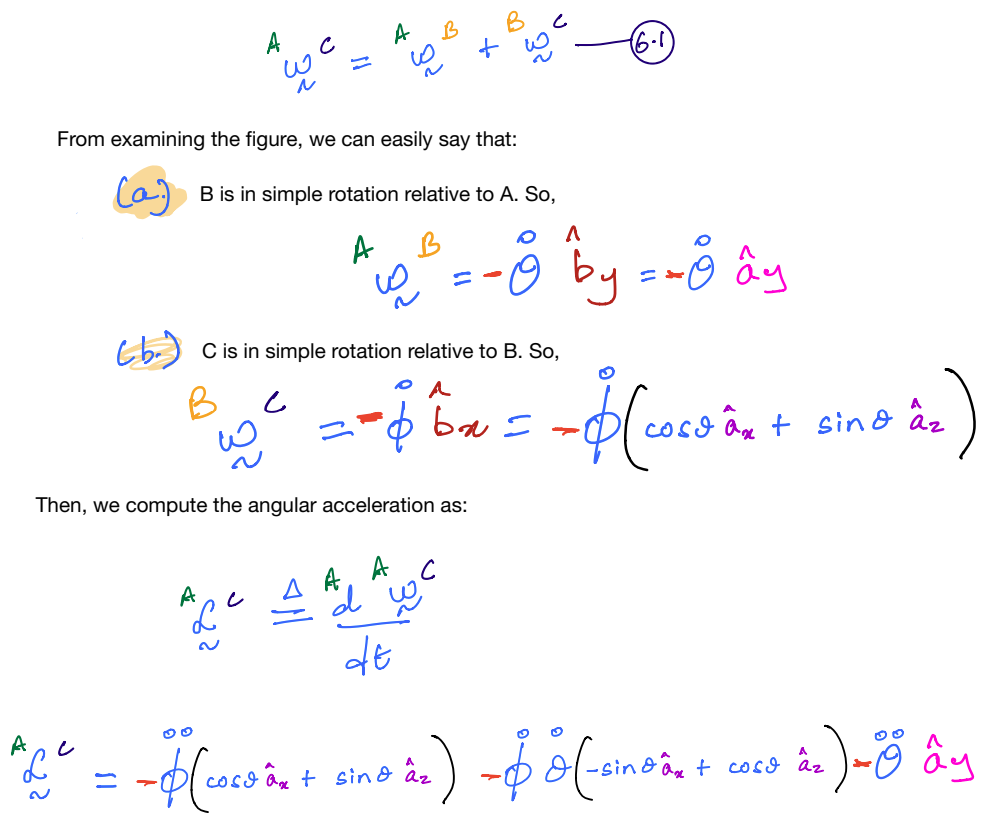 ᴬω̰ᶜ = ᴬω̰ᴮ + ᴮω̰ᶜ — 6.1
From examining the figure, we can easily say that:
(a.) B is in simple rotation relative to A. So,
ᴬω̰ᴮ = -θ̊ b̂y = -θ̊ ây
(b.) C is in simple rotation relative to B. So,
ᴮω̰ᶜ = -ϕ̊ b̂x = -ϕ̊ (cosθ âx + sinθ âz)
Then, we compute the angular acceleration as:
ᴬα̰ᶜ ≜ ᴬd ᴬω̰ᶜ / dt
ᴬα̰ᶜ = -ϕ̈ (cosθ âx + sinθ âz) -ϕ̊ θ̊ (-sinθ âx + cosθ âz) -θ̈ ây